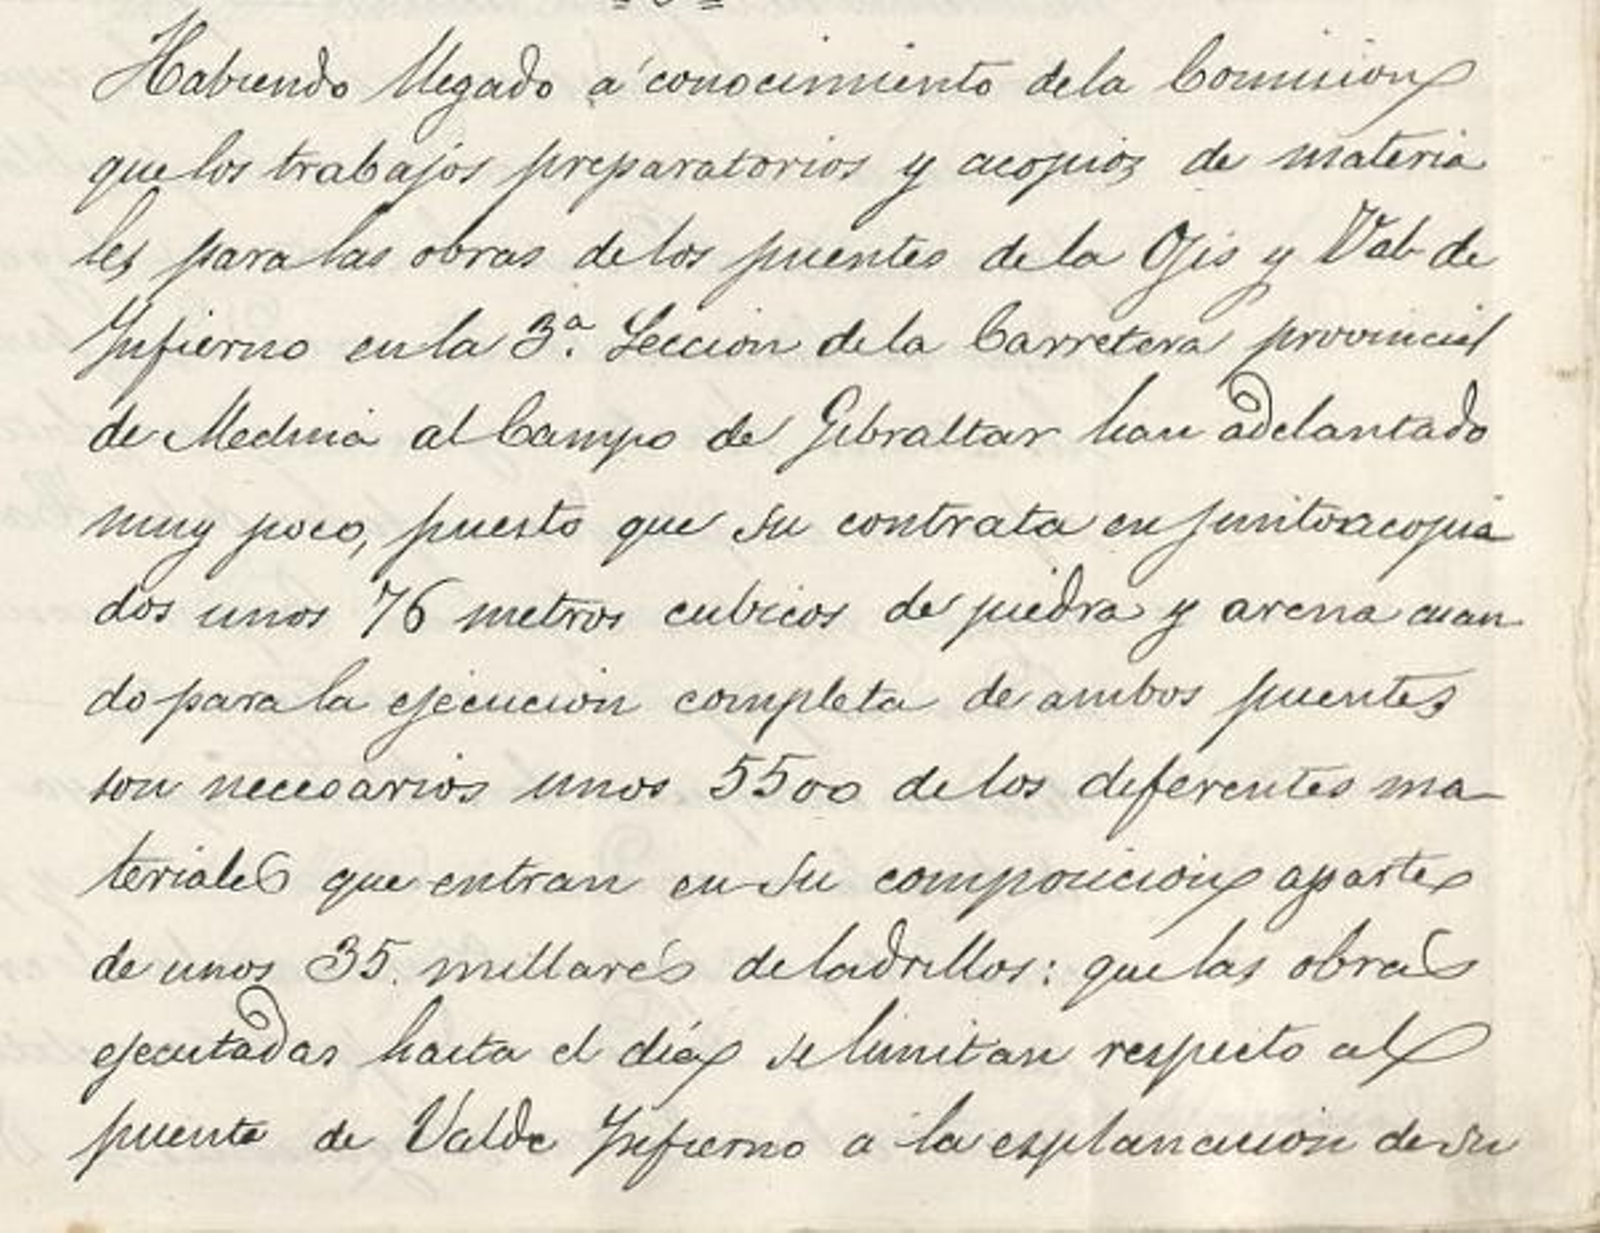 Habiendo llegado a conocimiento dela Comision
que los trabajos preparatorios y acopios de materia
les para las obras de los puentes de la Ojis y Val de
Infierno en la 3ª. Seccion de la Carretera provincial
de Medina al Campo de Gibraltar han adelantado
muy poco, puesto que su contrata en junito acopia
dos unos 76 metros cubicos de piedra y arena cuan
do para la ejecucion completa de ambos puentes
son necesarios unos 5500 de los diferentes ma-
teriales que entran en su composicion aparte
de unos 35. millares de ladrillos: que las obras
ejecutadas hasta el día se limitan respecto al
puente de Valde Infierno a la esplanacion de su